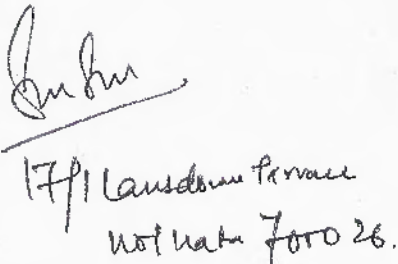 17/1 Lansdowne Terrace
Kolkata 700026.